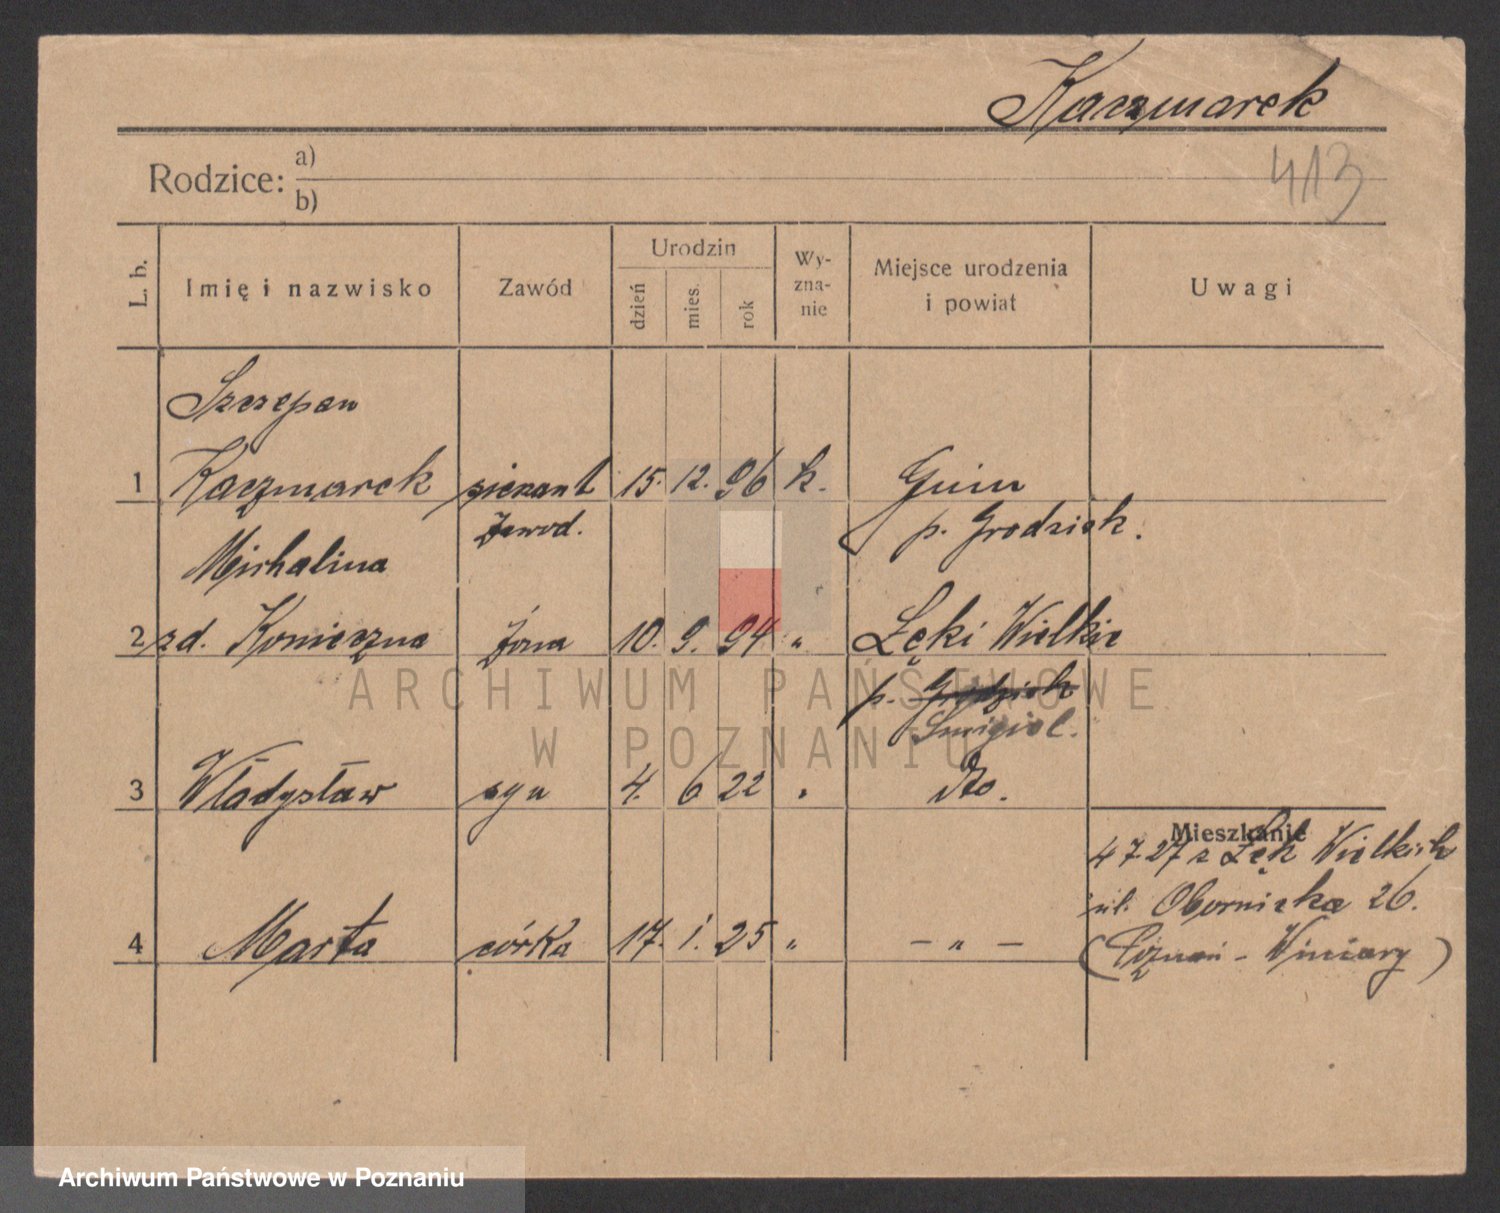 Kaczmarek
Rodzice: a)
b)
413
L. b.
Imię i nazwisko
Zawód
Urodzin
dzień
mies.
rok
Wy-
zna-
nie
Miejsce urodzenia
i powiat
Uwagi
Szczepan
1 Kaczmarek sierżant 15. 12. 96 k.
zawod. p. Grodzisk.
Michalina
2 zd. Konieczna żona 10. 9. 94 " Łęki Wielkie
p. Grodzisk
Śmigiel.
3 Władysław syn 4. 6 22 " dto.
Mieszkanie
4 7 27 z Łęk Wielkich
ul. Obornicka 26.
4 Marta córka 17. 1. 25 " — " —
(Poznań - Winiary)
ARCHIWUM PAŃSTWOWE
W POZNANIU
Archiwum Państwowe w Poznaniu